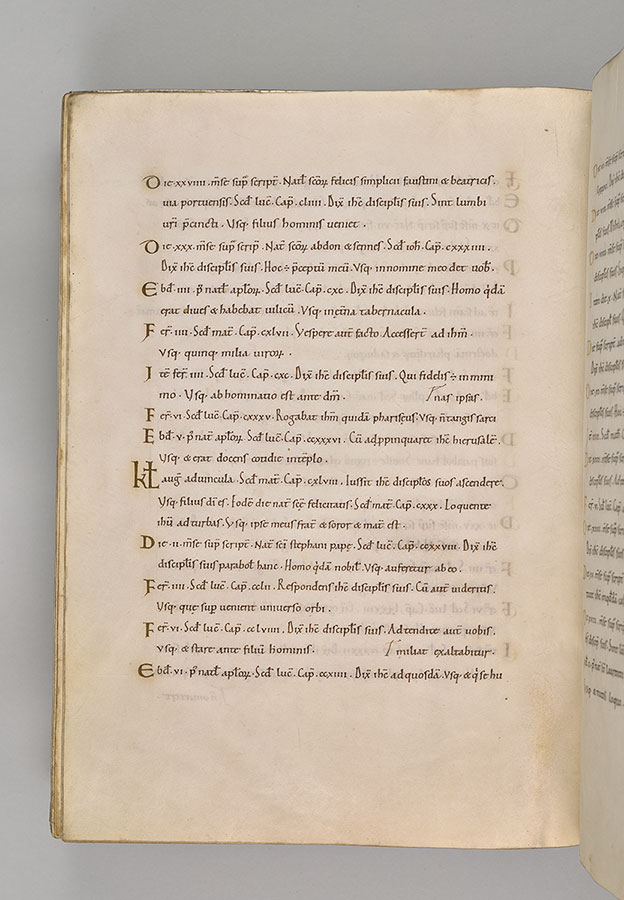 Die xxviiii. m̅se sup̅ script̅. Natł sc̅oꝝ felicis simplicii faustini & beatricis.
uia portuensis. Scđ luc̅. Cap̅. cliiii. Dix̅ ihc̅ discipłis suis. Sint lumbi
ur̅i p̅cincti. Vsq. filius hominis ueniet.
Die xxx. m̅se sup̅ scrip̅. Nat̅ sc̅oꝝ abdon & sennes. Scđ ioh̅. Cap̅. cxxxiiii.
Dix̅ ihc̅ discipłis suis. Hoc ÷ p̅ceptu̅ meu̅. Vsq. in nomine meo det uob̅.
Ebđ. iiii. p̅ natł apłoꝝ. Scđ luc̅. Cap̅. cxc. Dix̅ ihc̅ discipłis suis. Homo q̅dā
erat diues & habebat uilicu̅. Vsq. in et̅na tabernacula.
Fer̅. iiii. Scđ mat̅. Cap̅. cxlvii. Vespere aut̅ facto. Accesser̅t ad ihm̅.
Vsq. quinq. milia uiroꝝ.
Ite̅ fer̅. iiii. Scđ luc̅. Cap̅. cxc. Dix̅ ihc̅ discipłis suis. Qui fidelis ÷ in mini
mo. Vsq. abhominatio est ante dm̅. nas ipsius.
Fer̅. vi. Scđ luc̅. Cap̅. cxxxv. Rogabat ihm̅ quidā phariseus. Vsq. n̅ tangis sarci
Ebđ. v. p̅ nat̅ apłoꝝ. Scđ luc̅. Cap̅. ccxxxvi. Cu̅ adppinquaret ihc̅ hierusale̅.
Vsq. & erat docens cotidie in te̅plo.
kł aug̅ ad uincula. Scđ mat̅. Cap̅. cxlviii. Iussit ihc̅ discipłos suos ascendere.
Vsq. filius dī es. Eode̅ die nat̅ sc̅e felicitatis. Scđ mat̅. Cap̅. cxxx. Loquente
ihu̅ ad turbas. Vsq. ipse meus frat̅ & soror & mat̅ est.
Die ii. m̅se sup̅ script̅. Nat̅ sc̅i stephani pape. Scđ luc̅. Cap̅. ccxxviii. Dix̅ ihc̅
discipłis suis parabol̅ hanc. Homo q̅dā nobil̅. Vsq. auferetur ab eo.
Fer̅. iiii. Scđ luc̅. Cap̅. cclii. Respondens ihc̅ discipłis suis. Cu̅ aut̅ uideritis.
Vsq. que sup uenient uniuerso orbi.
Fer̅. vi. Scđ luc̅. Cap̅. cclviii. Dix̅ ihc̅ discipłis suis. Adtendite aut̅ uobis.
vsq. & stare ante filiu̅ hominis. miliat exaltabitur.
Ebđ. vi. p̅ natł apłoꝝ. Scđ luc̅. Cap̅. ccxiiii. Dix̅ ihc̅ ad quosdā. Vsq. & q̅ se hu